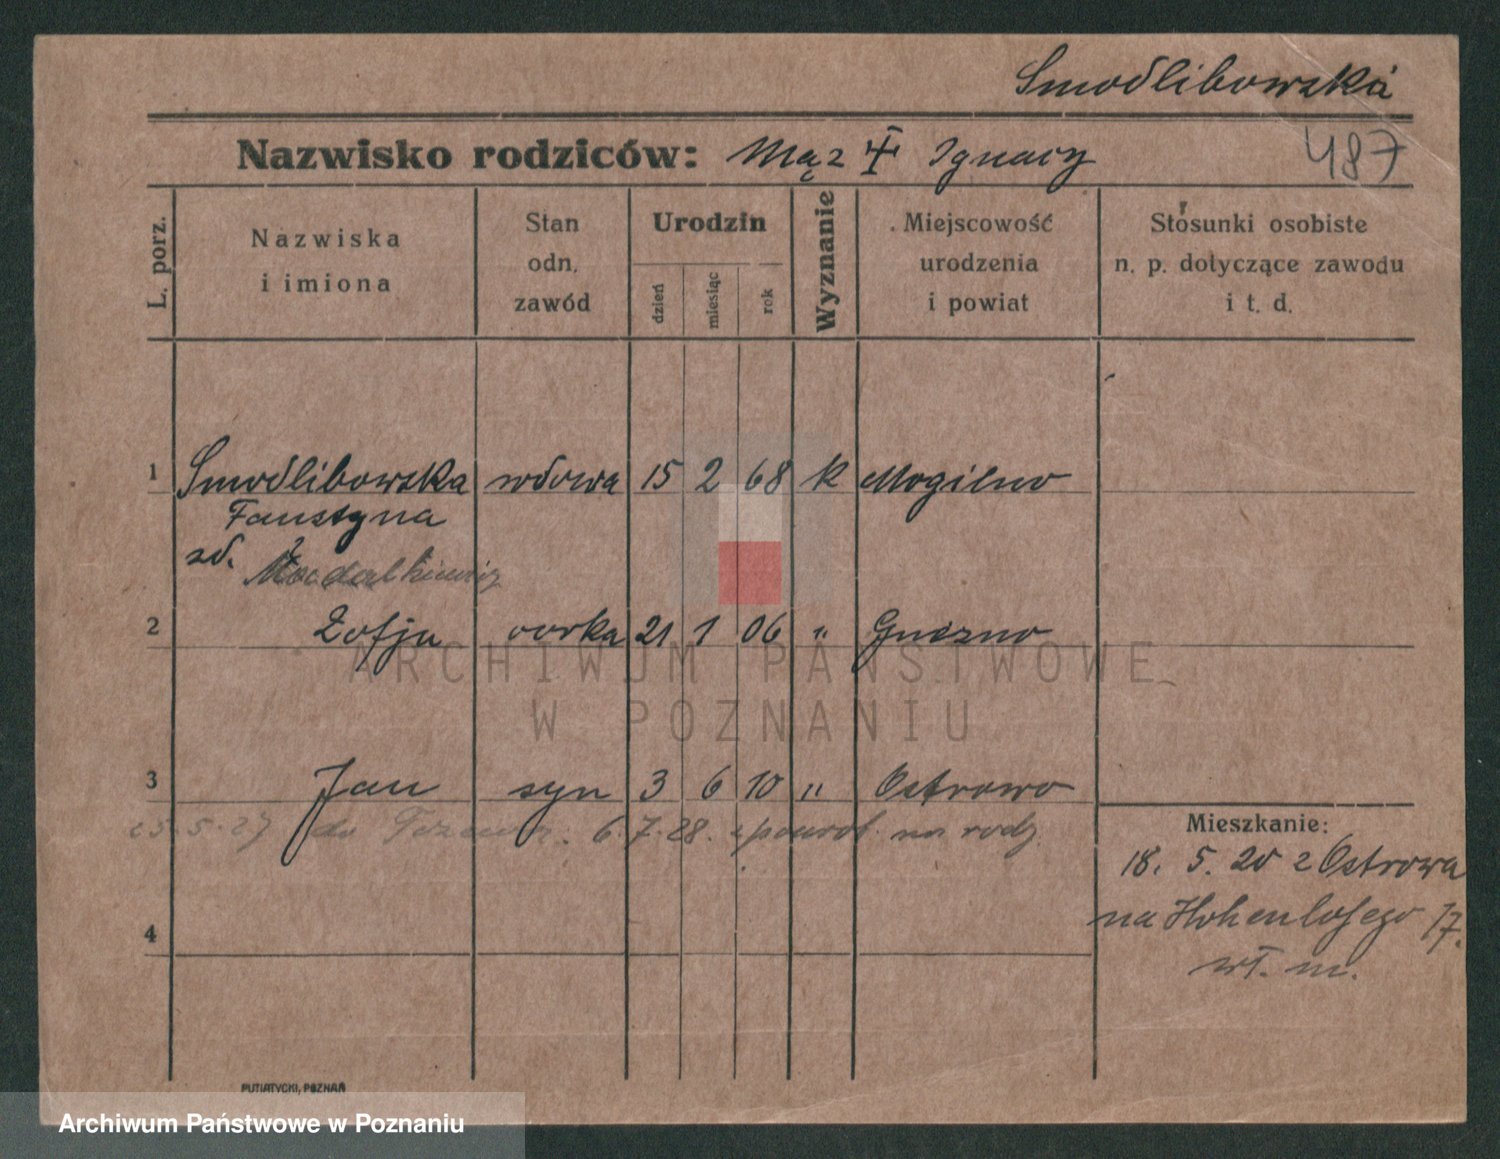 Smodlibowska
Nazwisko rodziców: Mąż Ignacy
487
L. porz.
Nazwiska
i imiona
Stan
odn.
zawód
Urodzin
dzień
miesiąc
rok
Wyznanie
Miejscowość
urodzenia
i powiat
Stosunki osobiste
n. p. dotyczące zawodu
i t. d.
1 Smodlibowska wdowa 15 2 68 k Mogilno
Faustyna
zd.
2 Zofja corka 21 1 06 " Gniezno
ARCHIWUM PAŃSTWOWE
W POZNANIU
3 Jan syn 3 6 10 " Ostrowo
25.5.27 do 6.7.28. z powrot. na rodz.
Mieszkanie:
18. 5. 20 z Ostrowa
na Hohenlohego
wł. m.
4
PUTIATYCKI, POZNAŃ
Archiwum Państwowe w Poznaniu